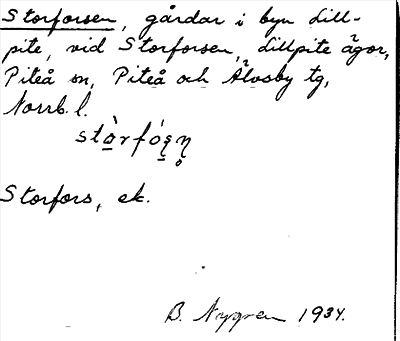 Storforsen, gårdar i byn Lill-
pite, vid Storforsen, Lillpite ägor,
Piteå sn, Piteå och Älvsby tg,
Norrb. l.
Storfors, ek.
B. Nygren 1934.